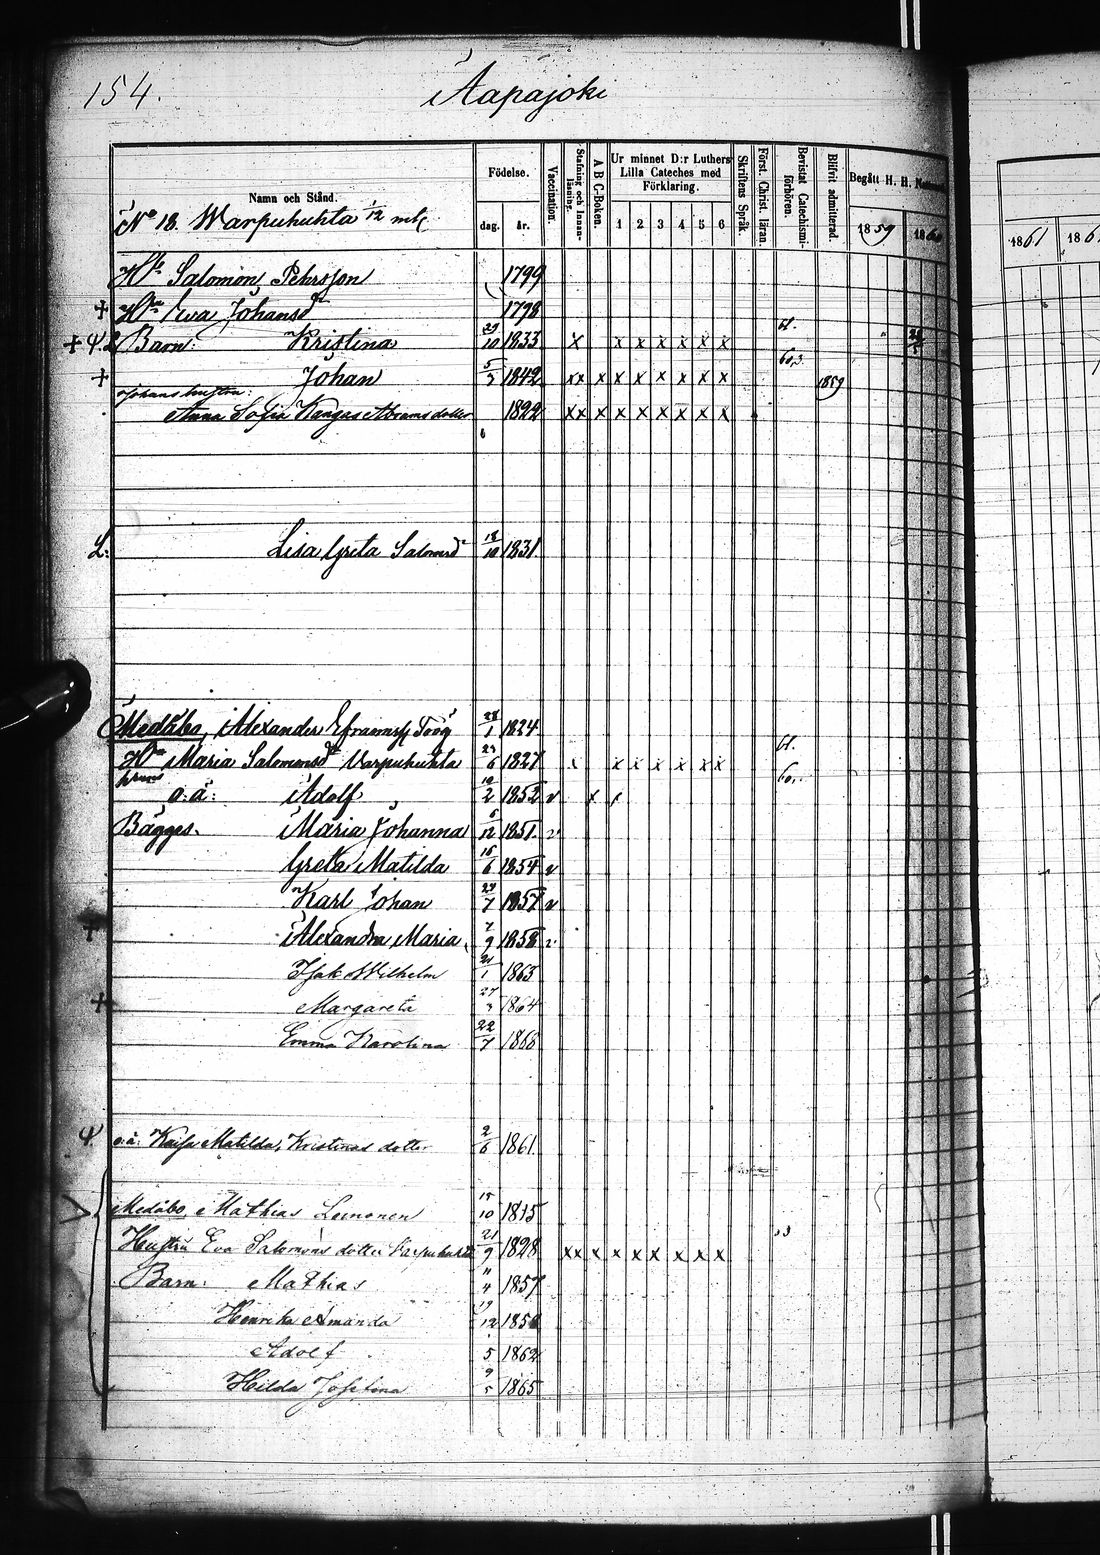 154.
Aapajoki
Namn och Stånd.
Födelse.
dag. år.
Vaccination.
Stafning och Innanläsning.
A B C-Boken.
Ur minnet D:r Luthers Lilla Cateches med Förklaring.
1 2 3 4 5 6
Skriftens Språk.
Först. Christ. läran.
Bevistat Catechismiförhören.
Blifvit admitterad.
Begått H. H. Nattvard
1859 1860
1861
No 18. Warpuhuhta 1/12 mtl
Salomon Pehrsson 1799
+ Eva Johansd 1798
+ Barn: Kristina 29/10 1833 x x x x x x x 61.
+ Johan 5/3 1842 xx x x x x x x x 60,3 1859
Johans hustru:
Anna Sofia Kangas Abramsdotter 1822 xx x x x x x x x
L: Lisa Greta Salomsd 18/10 1831.
Medåbo, Alexander 28/1 1824
Hu Maria Salomonsd Varpuhuhta 6 1827 x x x x x x x 61.
o.ä: Adolf 10/2 1852 v x 60,
Bägges. Maria Johanna 5/12 1851. v
Greta Matilda 15/6 1854 v
Karl Johan 29/7 1857 v
+ Alexandra Maria 7/9 1858 v
Isak Wilhelm 21/1 1863
+ Margareta 27 1864
Emma Karolina 22/7 1866
o.ä. Kaisa Matilda, Kristinas dotter 2/6 1861.
Medåbo, Mathias Leinonen 15/10 1815
Hustru Eva Salomons dotter Varpuhuhta 21/9 1828 xx x x x x x x x
Barn: Mathias 11/4 1857
Henrika Amanda 19/12 1858
Adolf 5 1862
Hilda Josefina 9/5 1865